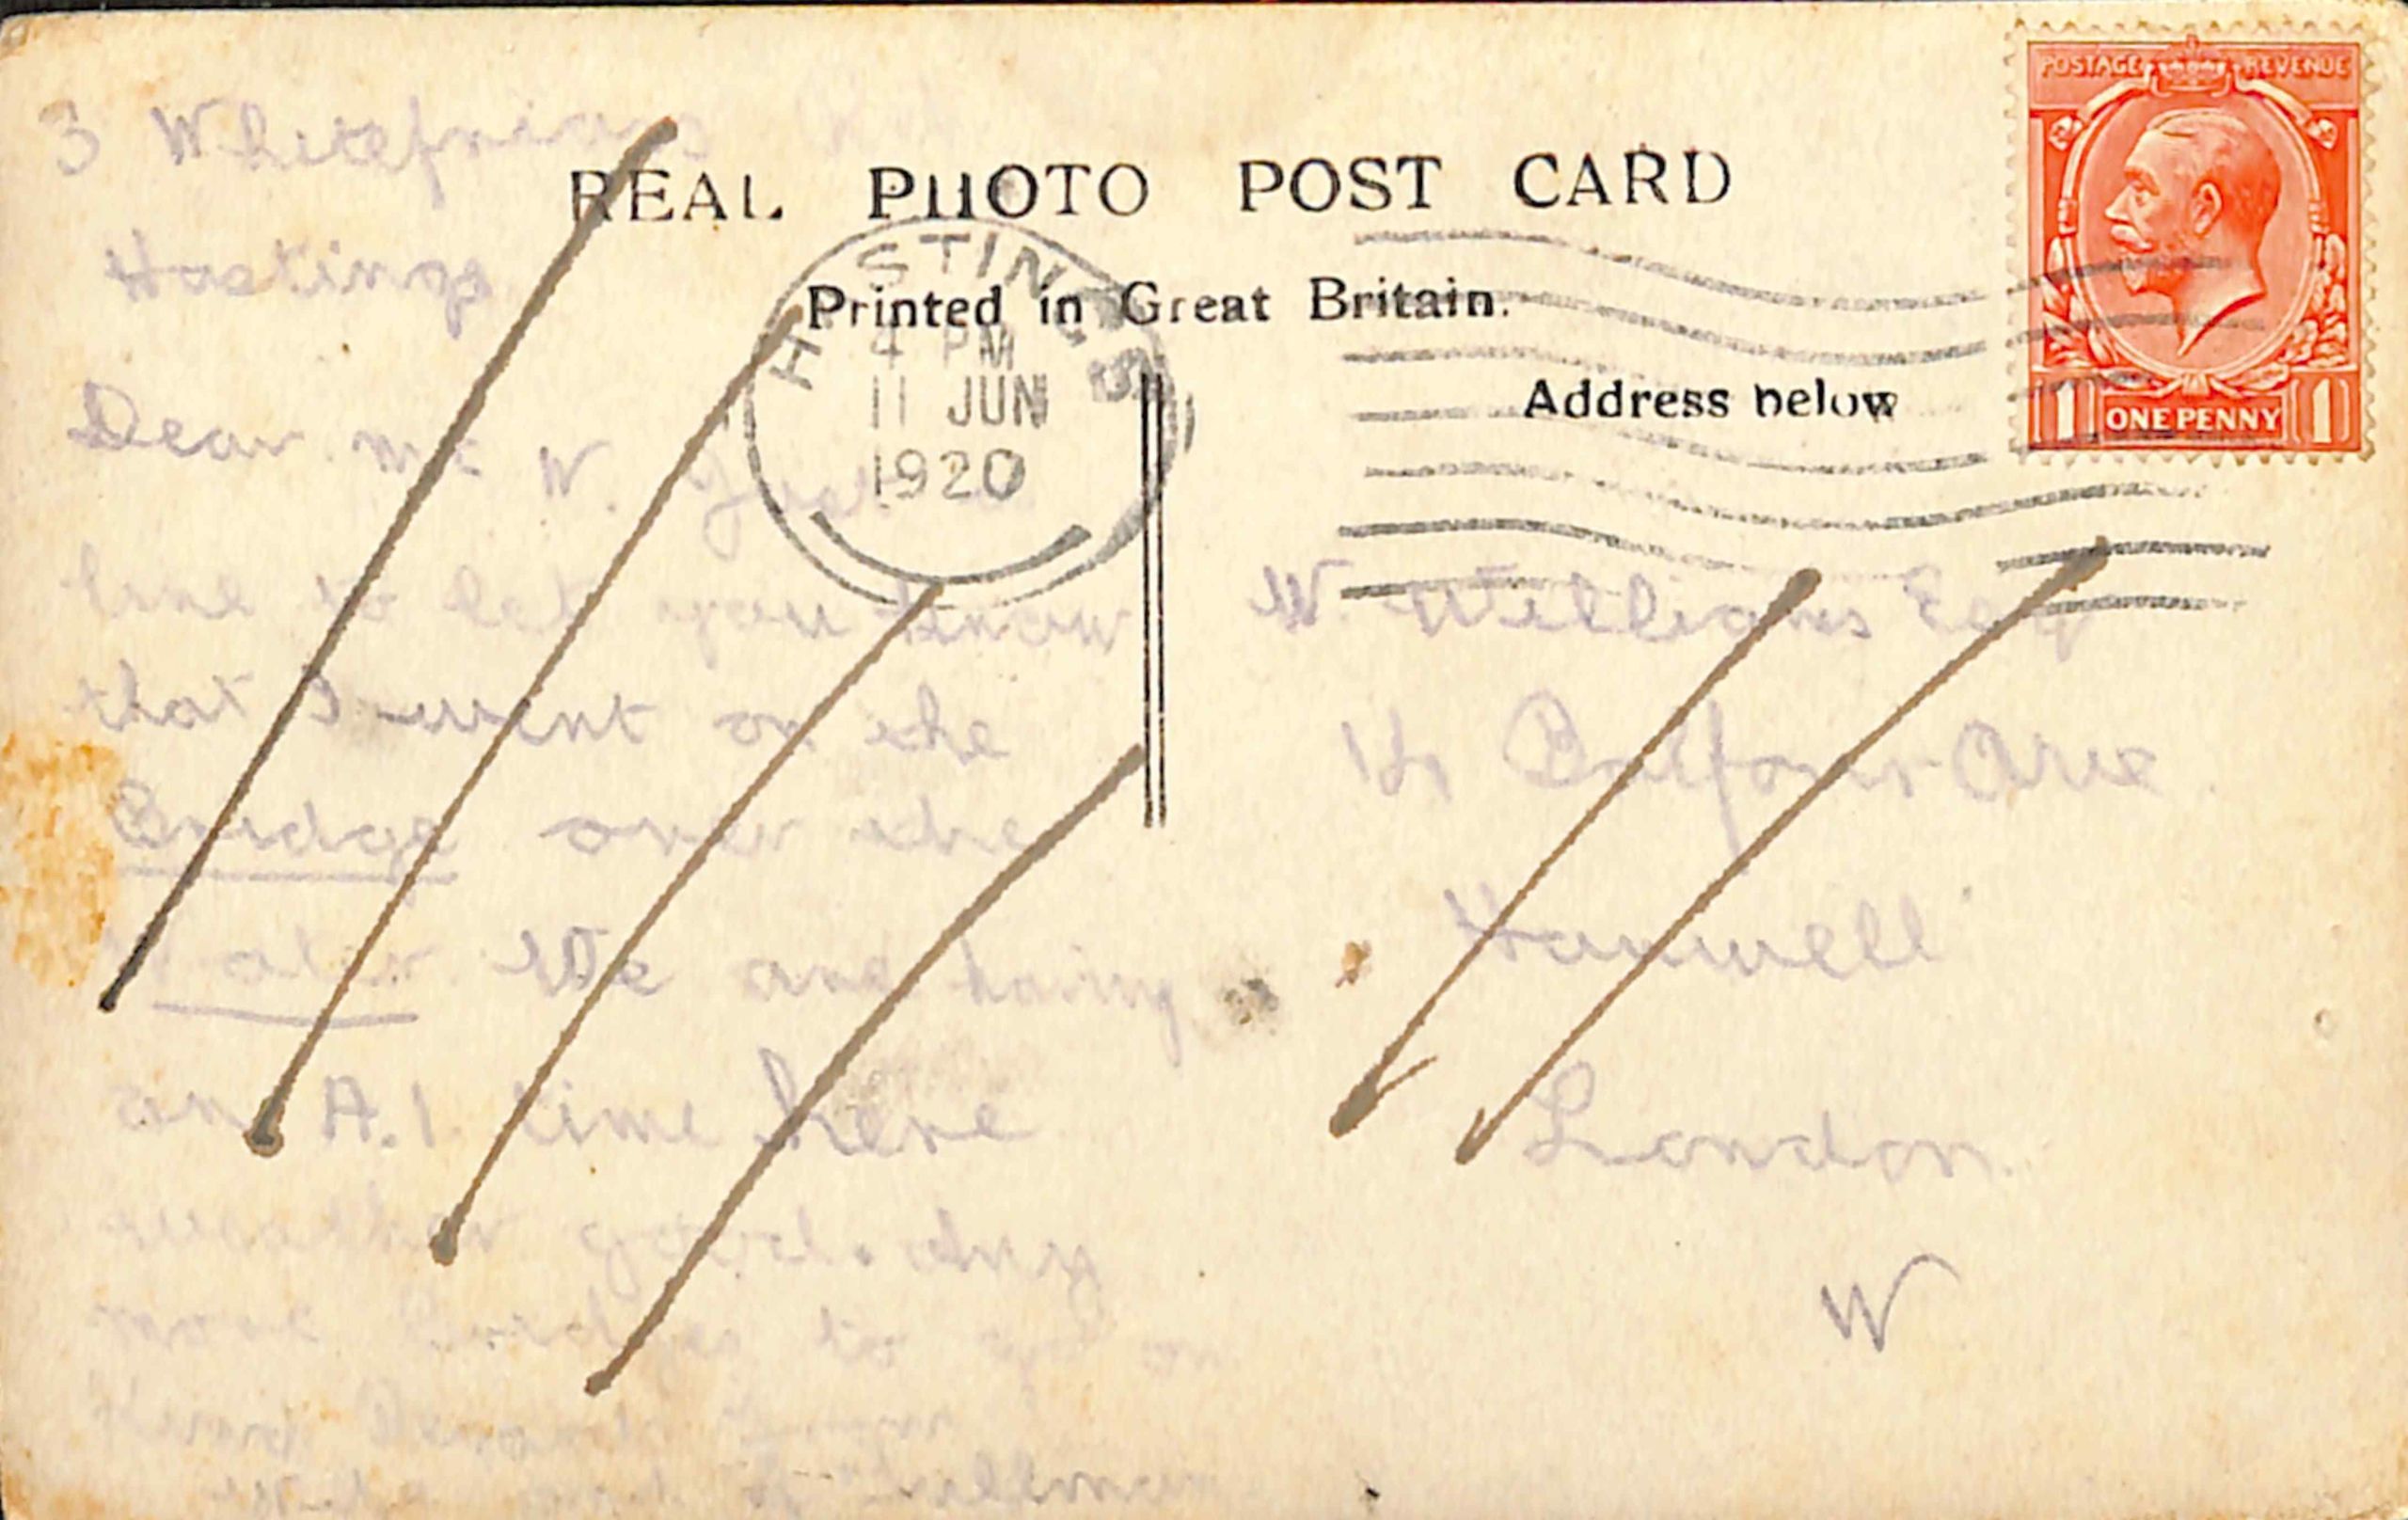 3 Whitefriars Rd
Hastings
REAL PHOTO POST CARD
Printed in Great Britain.
Address below
POSTAGE REVENUE
1 ONE PENNY 1
HASTINGS
4 PM
11 JUN
1920
Dear Mr W. Just a
line to let you know
that I went on the
Bridge over the
Water and having
an A.1 time here
weather good.
more Bridges to go on
W. Williams Esq
Balfour Ave
Hanwell
London
W